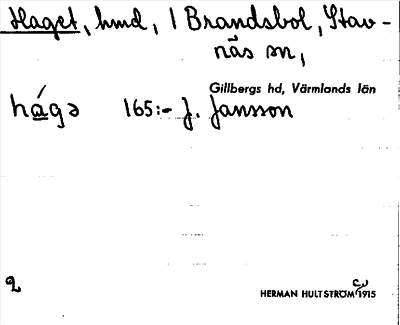 Haget, hmd, 1 Brandsbol, Stav-
näs sn,
Gillbergs hd, Värmlands län
hágə 165:- J. Jansson
2
HERMAN HULTSTRÖM 1915